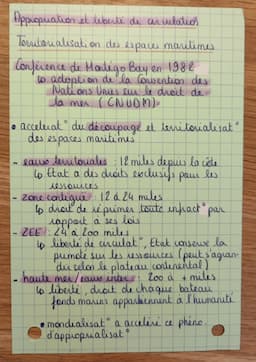 Appropriation et liberté de circulation
Territorialisation des espaces maritimes
Conférence de Montego Bay en 1982
↳ adoption de la Convention des
Nations Unies sur le droit de
la mer (CNUDM)
• accélérat° du découpage et territorialisat°
des espaces maritimes
- eaux territoriales : 12 miles depuis la côte
↳ Etat a des droits exclusifs pour les
ressources
- zone contiguë : 12 à 24 miles
↳ droit de réprimer toute infract° par
rapport à ses lois
- ZEE : 24 à 200 miles
↳ liberté de circulat°, Etat conserve la
sur les ressources (peut s'agran-
dir selon le plateau continental)
- haute mer / eaux inter : 200 à + miles
↳ liberté, droit de chaque bateau
fonds marins appartiennent à l'humanité
• mondialisat° a accéléré ce phéno
d'appropriat°